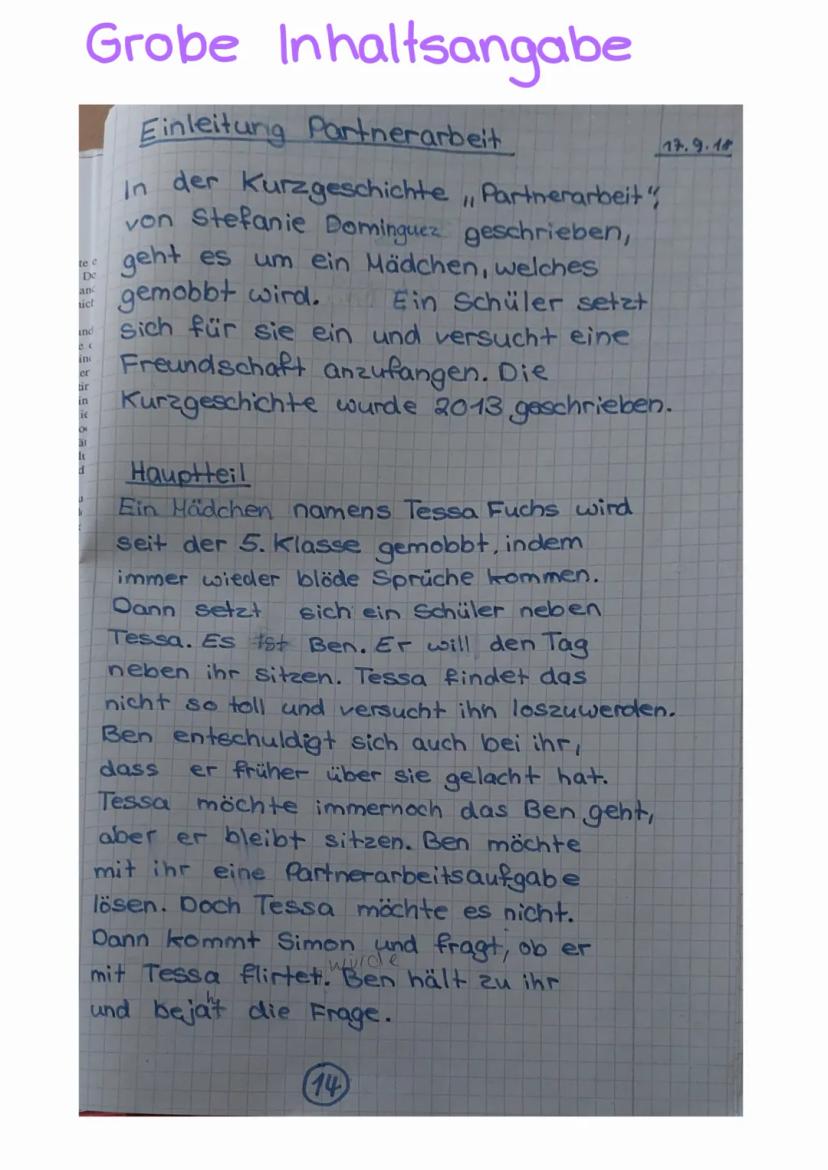 Grobe Inhaltsangabe
Einleitung Partnerarbeit
17.9.18
In der Kurzgeschichte „Partnerarbeit“,
von Stefanie Dominguez geschrieben,
geht es um ein Mädchen, welches
gemobbt wird. Ein Schüler setzt
sich für sie ein und versucht eine
Freundschaft anzufangen. Die
Kurzgeschichte wurde 2013 geschrieben.
Hauptteil
Ein Mädchen namens Tessa Fuchs wird
seit der 5. Klasse gemobbt, indem
immer wieder blöde Sprüche kommen.
Dann setzt sich ein Schüler neben
Tessa. Es ist Ben. Er will den Tag
neben ihr sitzen. Tessa findet das
nicht so toll und versucht ihn loszuwerden.
Ben entschuldigt sich auch bei ihr,
dass er früher über sie gelacht hat.
Tessa möchte immernoch das Ben geht,
aber er bleibt sitzen. Ben möchte
mit ihr eine Partnerarbeitsaufgabe
lösen. Doch Tessa möchte es nicht.
Dann kommt Simon und fragt, ob er
würde
mit Tessa flirtet. Ben hält zu ihr
und bejaht die Frage.
14